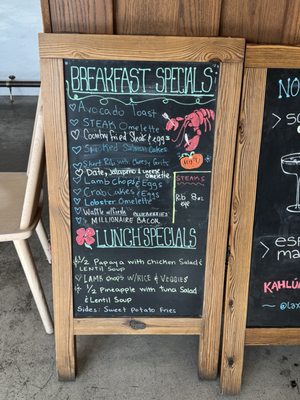 BREAKFAST SPECIALS
Avocado Toast
STEAK Omelette
Country Fried Steak & eggs
Salmon Cakes
Short Rib with Cheesy Grits
Date, Jalapeño & cheese omelette
Lamb Chops & Eggs
Crab Cakes &
Lobster Omelette
Waffle w/fruits BLUEBERRIES
MILLIONAIRE BACON
STEAKS
Rib Eye
LUNCH SPECIALS
½ Papaya with chicken Salad &
LENTIL SOUP
LAMB CHOPS W/RICE & VEGGIES
½ Pineapple with tuna Salad
& Lentil Soup
Sides: Sweet Potato Fries
NO
> S
> ESP
MA
KAHLÚA